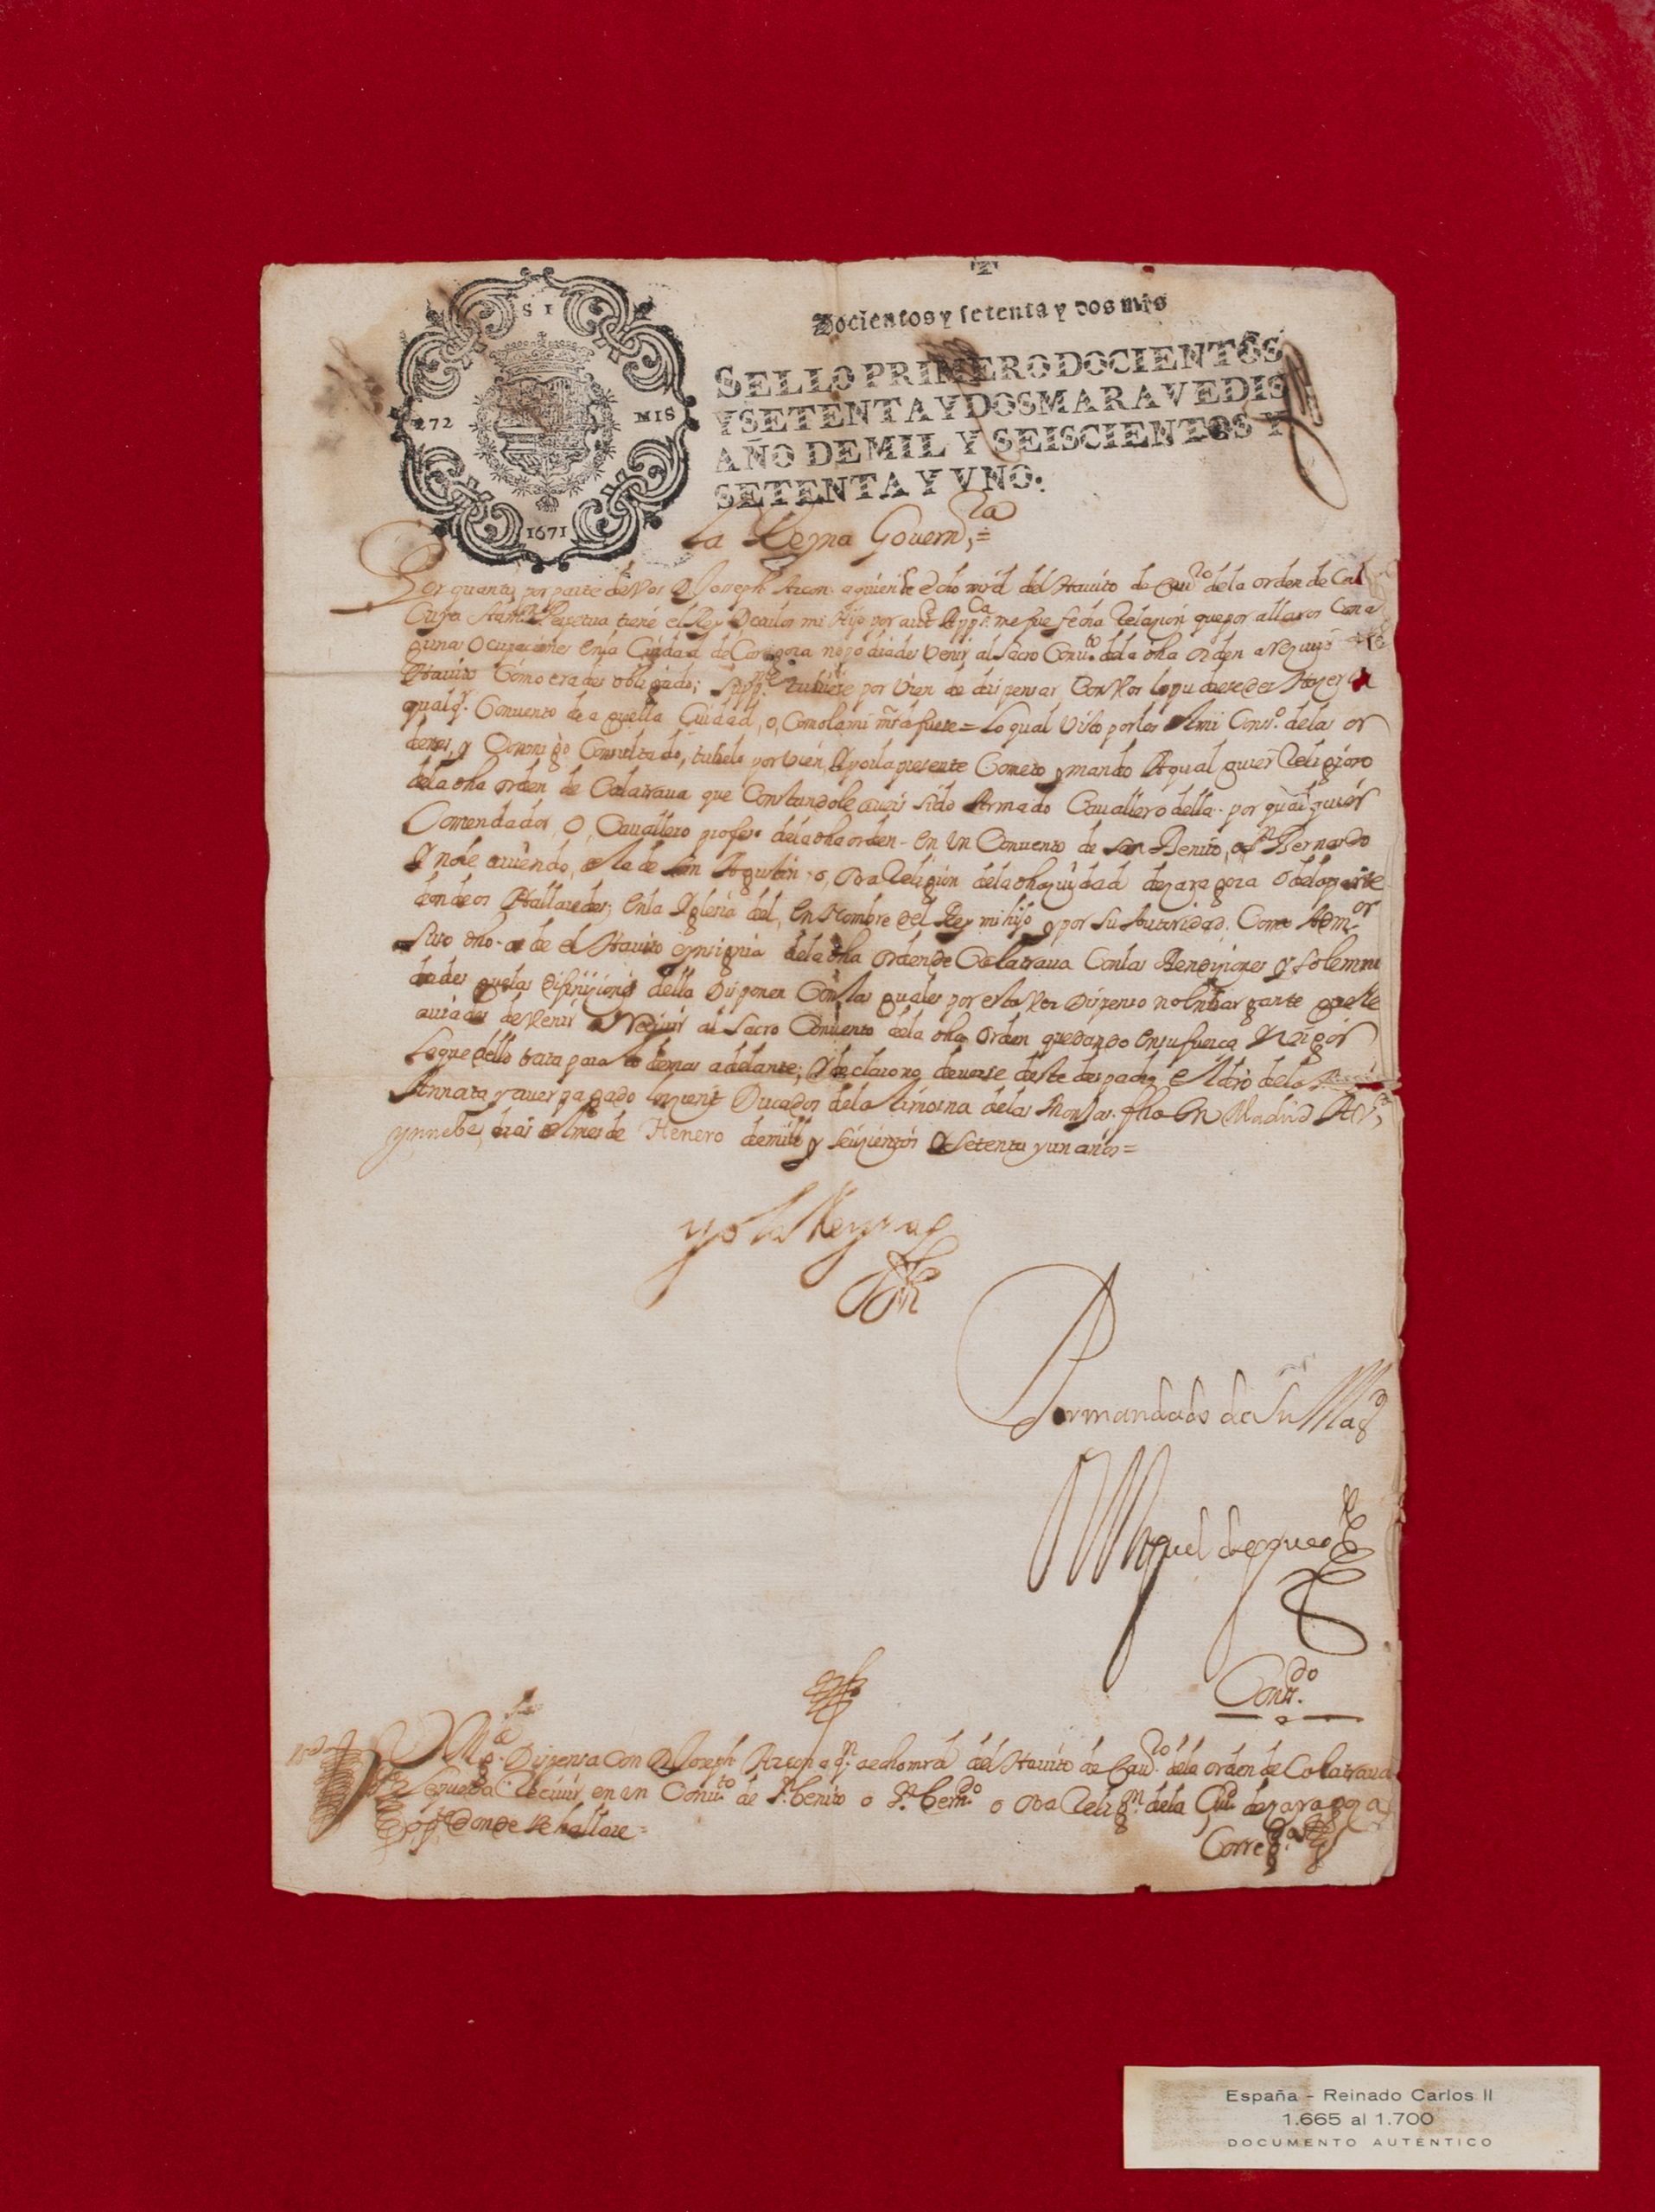 S I
272 MIS
1671
Docientos y setenta y dos mrs
SELLO PRIMERO DOCIENTOS
Y SETENTA Y DOS MARAVEDIS
AÑO DE MIL Y SEISCIENTOS Y
SETENTA Y VNO.
La Reyna Govern.ra =
Por quanto por parte de Vos D Joseph Azcon a quien he echo mrd del Hauito de Cau.ro de la orden de Cal
Cuya Perpetua tiene el Rey D Carlos mi Hijo por aut App.ca me fue fecha Relazion que por allaros Con a
gunas Ocupaciones en la Ciudad de Caragoza no podiades Venir al Sacro Conu.to de la dha orden a
Hauito Como erades obligado; Supp. tubiese por Vien de dispensar Con Vos lo pudiesedes Hazer en
qualq.r Convento de aquella Ciudad, o, Como la mi mrd fuese = Lo qual Visto por los del mi Cons.o de las or
denes, y Conmigo Consultado, tubelo por Vien, y por la presente Cometo y mando A qual quier Religioso
de la dha orden de Calatraua que Constandole aveis sido Armado Cauallero della por qual quier
Comendador, O, Cauallero profeso de la dha orden en Un Convento de San Benito, o S.n Bernardo
Y no le auiendo, de la de San Agustin, o, otra Religion de la dha ciudad de zaragoza o de la parte
donde os Hallaredes; en la Yglesia del, en Nombre del Rey mi hijo y por su autoridad Como Adm.or
suso dho os de el Hauito e ynsignia de la dha orden de Calatraua Con las Bendiziones y solemni
dades que las difiniziones della Disponen Con las quales por esta Vez Dispenso no enbargante que se
auiades de Venir a Reziuir al Sacro Convento de la dha orden quedando en su fuerca y Vigor
lo que dello trata para lo demas adelante; y declaro no deverse deste despacho el dro de la
Annata y auer pagado Ducados de la limosna de las Montas. fha En Madrid A
y nuebe dias del mes de Henero de mill y seiszientos y setenta y un años =
yo la Reyna
Por mandado de Su Mag.d
Miguel de
Con.do
V. Mg.d Dispensa Con D Joseph Azcon a q.n a echo mrd del Hauito de Cau.ro de la orden de Calatraua
se pueda Reciuir en un Conu.to de S. benito o S.n bern.do o otra Relig.n de la Ciu.d de zaragoza
donde se hallare =
Correg.a
España - Reinado Carlos II
1.665 al 1.700
DOCUMENTO AUTÉNTICO